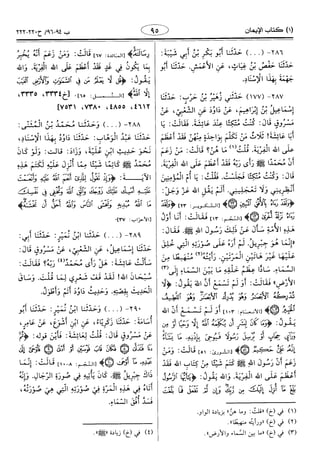 (١) كتاب الإيمان
٩٥
ب ٩٤-٩٦، ح ٢٢٠-٢٢٢
٢٨٦- (...) حَدَّثَنَا أَبُو بَكْرِ بْنُ أَبِي شَيْبَةَ:
حَدَّثَنَا حَفْصُ بْنُ غِيَاثٍ، عَنِ الأَعْمَشِ. حَدَّثَنَا أَبُو
بِهَذَا الإِسْنَادِ.
٢٨٧- (١٧٧) حَدَّثَنِي زُهَيْرُ بْنُ حَرْبٍ: حَدَّثَنَا
إِسْمَاعِيلُ بْنُ إِبْرَاهِيمَ، عَنْ دَاوُدَ، عَنِ الشَّعْبِيِّ، عَنْ
مَسْرُوقٍ قَالَ: كُنْتُ مُتَّكِئًا عِنْدَ عَائِشَةَ. فَقَالَتْ: يَا
أَبَا عَائِشَةَ! ثَلَاثٌ مَنْ تَكَلَّمَ بِوَاحِدَةٍ مِنْهُنَّ فَقَدْ أَعْظَمَ
عَلَى اللهِ الْفِرْيَةَ. قُلْتُ: مَا هُنَّ؟ قَالَتْ: مَنْ زَعَمَ
أَنَّ مُحَمَّدًا ﷺ رَأَى رَبَّهُ فَقَدْ أَعْظَمَ عَلَى اللهِ الْفِرْيَةَ.
قَالَ: وَكُنْتُ مُتَّكِئًا فَجَلَسْتُ. فَقُلْتُ: يَا أُمَّ الْمُؤْمِنِينَ
أَنْظِرِينِي وَلَا تَعْجَلِينِي. أَلَمْ يَقُلِ اللهُ عَزَّ وَجَلَّ:
﴿وَلَقَدْ رَآهُ بِالْأُفُقِ الْمُبِينِ﴾
﴿وَلَقَدْ رَآهُ نَزْلَةً أُخْرَى﴾ فَقَالَتْ: أَنَا أَوَّلُ
هَذِهِ الأُمَّةِ سَأَلَ عَنْ ذَلِكَ رَسُولَ اللهِ ﷺ. فَقَالَ:
«إِنَّمَا هُوَ جِبْرِيلُ. لَمْ أَرَهُ عَلَى صُورَتِهِ الَّتِي خُلِقَ
عَلَيْهَا غَيْرَ هَاتَيْنِ الْمَرَّتَيْنِ. رَأَيْتُهُ مُنْهَبِطًا مِنَ
السَّمَاءِ. سَادًّا عِظَمُ خَلْقِهِ مَا بَيْنَ السَّمَاءِ إِلَى
الأَرْضِ» فَقَالَتْ: أَوَ لَمْ تَسْمَعْ أَنَّ اللهَ يَقُولُ: ﴿لَا
تُدْرِكُهُ الْأَبْصَارُ وَهُوَ يُدْرِكُ الْأَبْصَارَ وَهُوَ اللَّطِيفُ
الْخَبِيرُ﴾ أَوَ لَمْ تَسْمَعْ أَنَّ اللهَ
يَقُولُ: ﴿وَمَا كَانَ لِبَشَرٍ أَنْ يُكَلِّمَهُ اللَّهُ إِلَّا وَحْيًا أَوْ مِنْ
وَرَاءِ حِجَابٍ أَوْ يُرْسِلَ رَسُولًا فَيُوحِيَ بِإِذْنِهِ مَا يَشَاءُ
إِنَّهُ عَلِيٌّ حَكِيمٌ﴾ قَالَتْ: وَمَنْ
زَعَمَ أَنَّ رَسُولَ اللهِ ﷺ كَتَمَ شَيْئًا مِنْ كِتَابِ اللهِ فَقَدْ
أَعْظَمَ عَلَى اللهِ الْفِرْيَةَ. وَاللهُ يَقُولُ: ﴿يَا أَيُّهَا الرَّسُولُ
بَلِّغْ مَا أُنْزِلَ إِلَيْكَ مِنْ رَبِّكَ وَإِنْ لَمْ تَفْعَلْ فَمَا بَلَّغْتَ
رِسَالَتَهُ﴾ قَالَتْ: وَمَنْ زَعَمَ أَنَّهُ يُخْبِرُ
بِمَا يَكُونُ فِي غَدٍ فَقَدْ أَعْظَمَ عَلَى اللهِ الْفِرْيَةَ. وَاللهُ
يَقُولُ: ﴿قُلْ لَا يَعْلَمُ مَنْ فِي السَّمَاوَاتِ وَالْأَرْضِ الْغَيْبَ
إِلَّا اللَّهُ﴾
٤٦١٢، ٤٨٥٥، ٧٣٨٠، ٧٥٣١]
٢٨٨- (...) وَحَدَّثَنَا مُحَمَّدُ بْنُ الْمُثَنَّى:
حَدَّثَنَا عَبْدُ الْوَهَّابِ: حَدَّثَنَا دَاوُدُ بِهَذَا الإِسْنَادِ،
نَحْوَ حَدِيثِ ابْنِ عُلَيَّةَ، وَزَادَ: قَالَتْ: وَلَوْ كَانَ
مُحَمَّدٌ ﷺ كَاتِمًا شَيْئًا مِمَّا أُنْزِلَ عَلَيْهِ لَكَتَمَ هَذِهِ
الآيَةَ: ﴿وَإِذْ تَقُولُ لِلَّذِي أَنْعَمَ اللَّهُ عَلَيْهِ وَأَنْعَمْتَ
عَلَيْهِ أَمْسِكْ عَلَيْكَ زَوْجَكَ وَاتَّقِ اللَّهَ وَتُخْفِي فِي نَفْسِكَ
مَا اللَّهُ مُبْدِيهِ وَتَخْشَى النَّاسَ وَاللَّهُ أَحَقُّ أَنْ تَخْشَاهُ﴾
[الأحزاب: ٣٧].
٢٨٩- (...) حَدَّثَنَا ابْنُ نُمَيْرٍ: حَدَّثَنَا أَبِي:
حَدَّثَنَا إِسْمَاعِيلُ، عَنِ الشَّعْبِيِّ، عَنْ مَسْرُوقٍ قَالَ:
سَأَلْتُ عَائِشَةَ: هَلْ رَأَى مُحَمَّدٌ ﷺ رَبَّهُ؟ فَقَالَتْ:
سُبْحَانَ اللهِ! لَقَدْ قَفَّ شَعَرِي لِمَا قُلْتَ. وَسَاقَ
الْحَدِيثَ بِقِصَّتِهِ. وَحَدِيثُ دَاوُدَ أَتَمُّ وَأَطْوَلُ.
٢٩٠- (...) وَحَدَّثَنَا ابْنُ نُمَيْرٍ: حَدَّثَنَا أَبُو
أُسَامَةَ: حَدَّثَنَا زَكَرِيَّاءُ، عَنِ ابْنِ أَشْوَعَ، عَنْ عَامِرٍ،
عَنْ مَسْرُوقٍ قَالَ: قُلْتُ لِعَائِشَةَ: فَأَيْنَ قَوْلُهُ: ﴿ثُمَّ
دَنَا فَتَدَلَّى فَكَانَ قَابَ قَوْسَيْنِ أَوْ أَدْنَى فَأَوْحَى إِلَى
عَبْدِهِ مَا أَوْحَى﴾ قَالَتْ: إِنَّمَا
ذَاكَ جِبْرِيلُ ﷺ. كَانَ يَأْتِيهِ فِي صُورَةِ الرِّجَالِ. وَإِنَّهُ
أَتَاهُ فِي هَذِهِ الْمَرَّةِ فِي صُورَتِهِ الَّتِي هِيَ صُورَتُهُ،
فَسَدَّ أُفُقَ السَّمَاءِ.
(١) في (خ) «قلت: وما هن» بزيادة الواو.
(٢) في (خ)
(٣) في (خ) «ما بين السماء والأرض».
(٤) في (خ) زيادة «ﷺ».